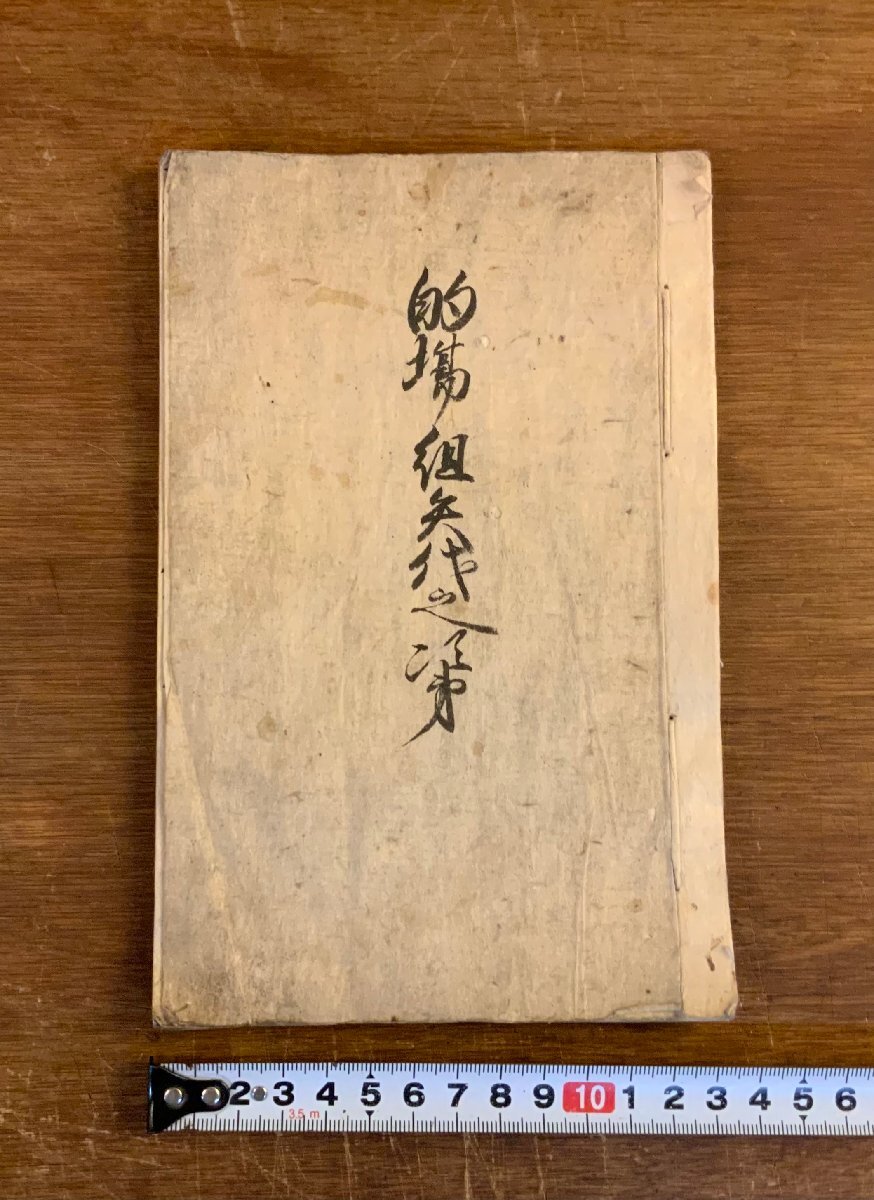 的場組矢代之次第
2 3 4 5 6 7 8 9 10 1 2 3 4 5 6
3.5 m